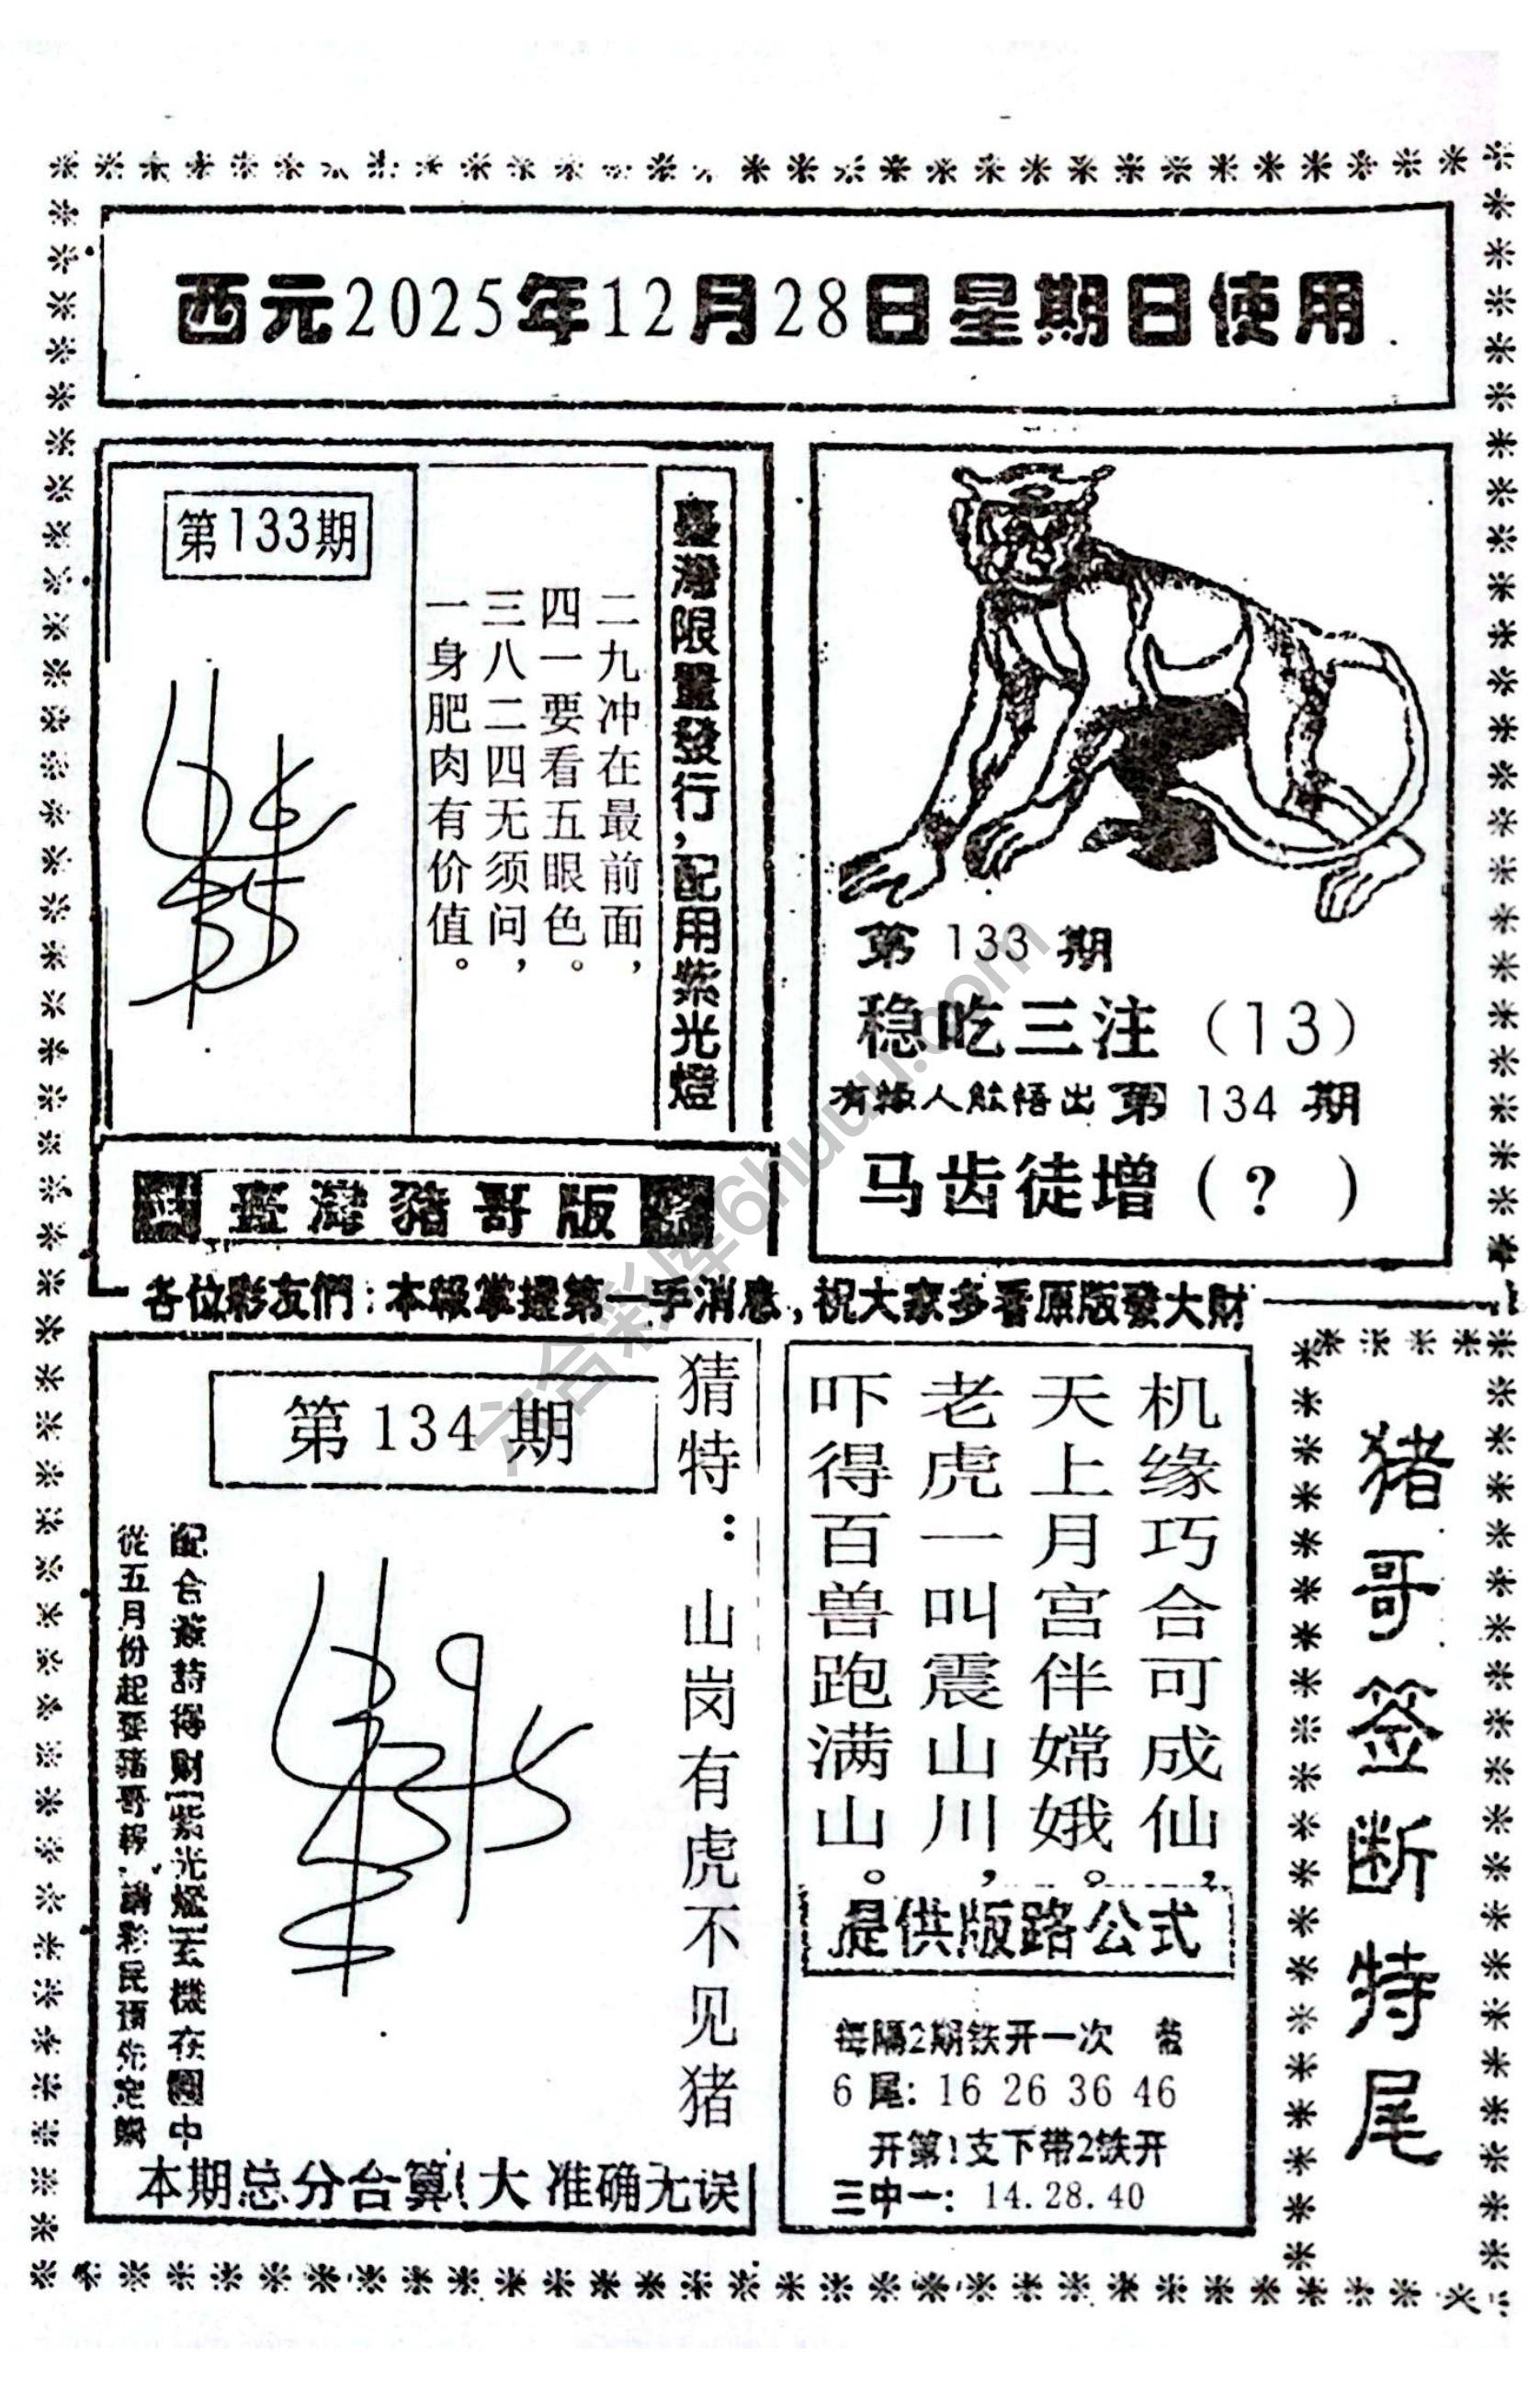 西元2025年12月28日星期日使用
第133期
臺灣限量發行,配用紫光燈
二九冲在最前面,
四一要看五眼色。
三八二四无须问,
一身肥肉有价值。
第 133 期
稳吃三注（13）
有缘人能悟出 第 134 期
马齿徒增（？）
臺灣豬哥版
各位彩友們:本報掌握第一手消息,祝大家多看原版發大財
第134期
猜特：山岗有虎不见猪
配合签詩得财[紫光燈]玄機在圖中
從五月份起 豬哥報 彩民預先定購
本期总分合算!大 准确无误
机缘巧合可成仙,
天上月宫伴嫦娥。
老虎一叫震山川,
吓得百兽跑满山。
提供版路公式
每隔2期铁开一次 带
6尾: 16 26 36 46
开第1支下带2铁开
三中一: 14.28.40
猪哥签断特尾
六合彩库6huuu.com